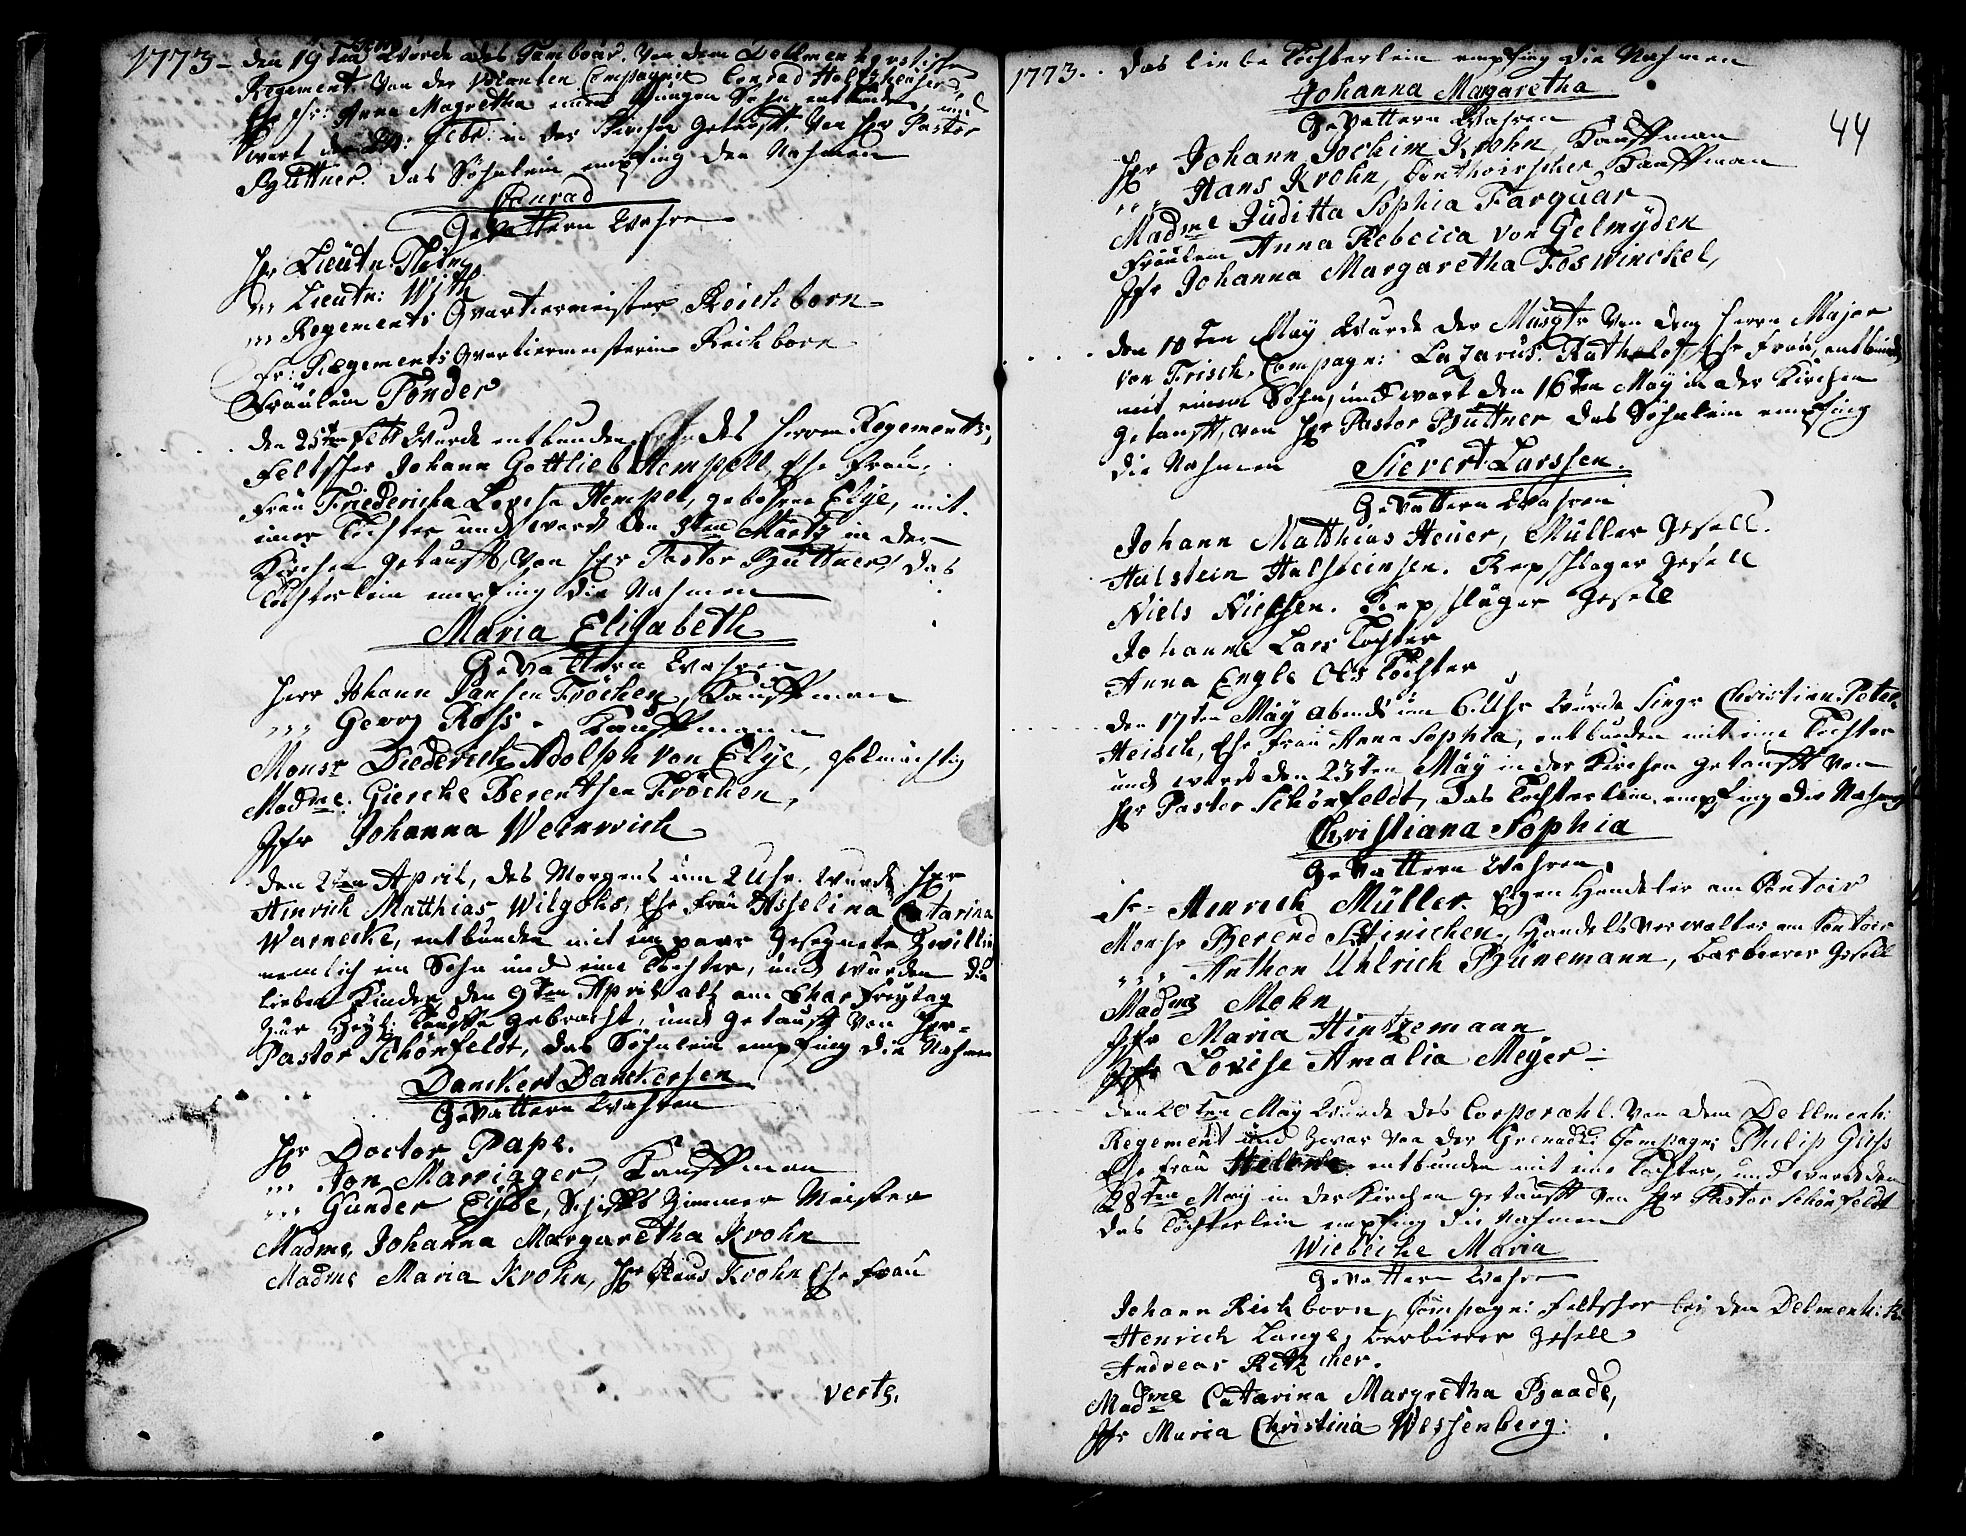 1773 – den 19 Ten Febr wurde des Tambour. von dem Dellmenhorstischen
Regement von der Compagnie Conrad
Ehe Fr: Anna Magretha eines jungen Sohn entbunden, und
wart den Febr: in der Kirchen getaufft, von Hr Pastor
Büttner. das Söhnlein empfing den Nahmen
Conrad
Gevattern Wahren
Hr Lieutn:
,,, Lieutn: With
,,, Regements Qvartiermeister Reichborn
Fr: Regements Qvartiermeisterin Reichborn
Fräulein Tönder
den 25ten Febr wurde entbunden des Herren Regements,
Feltscher Johann Gottlieb Hempell, Ehe Frau,
Frau Friedericha Lovisa Hempel, gebohren Elÿe, mit
einer Tochter und wart den 5ten Martz in der
Kirchen getaufft, von Hr Pastor Büttner, das
Töchterlein empfing die Nahmen
Maria Elisabeth
Gevattern Wahren
Herr Johann Jansen Fröchen, Kauffman
,,, Georg Ross. Kauffmann
Monsr Diederich Adolph von Elÿe,
Madme. Giercke Berentsen Fröchen,
Jfr Johanna Weinwich
den 2ten April, des Morgens um 2 Uhr. wurde Hr
Hinrich Matthias Wilgohs, Ehe Frau Asselina Catarina
Warnecke, entbunden mit ein paar gesegnete Zwillin
nemlich ein Sohn und eine Tochter, und wurden die
lieben Kinder den 9ten April als am Char Freytag
zur Heyl: Tauffe gebracht, und getaufft von Hr
Pastor Schönfeldt, das Söhnlein empfing die Nahmen
Danckert Danckersen
Gevattern Wahren
Hr Doctor Pape.
,,, Jon Marriager, Kauffman
,,, Gunder Eÿde, Schiffs Zimmer Meister
Madme, Johanna Margaretha Krohn
Madme Maria Krohn, Hr Claus Krohn Ehe Frau
verte.
1773. das liebe Töchterlein empfing die Nahmen
44
Johanna Margaretha
Gevattern Wahren
Hr Johann Jochim Krohn, Kauffman
,,, Hans Krohn, Contoirscher Kauffman
Madme Juditta Sophia Farquar
Fräulein Anna Rebecca von Gelmÿden
Jfr Johanna Margaretha Foswinckel,
den 10ten Maÿ wurde der Musqtr von dem Herrn Major
von Frisch, Compagn: Lazarus Ehe Frau, entbunden
mit einem Sohn, und wart den 16ten Maÿ in der Kirchen
getaufft, von Hr Pastor Büttner das Söhnlein empfing
die Nahmen Sievert Larssen.
Gevattern Wahren
Johann Matthias Heuer, Müller Gesell.
Halstein Halsteinsen. Repschlager Gesell
Niels Nielssen. Repschlager Gesell
Johanne Lars Tochter
Anna Engle Ols Tochter
den 17ten Maÿ abends um 6 Uhr wurde Singr Christian Peter
Heisch, Ehe Frau Anna Sophia, entbunden mit eine Tochter
und wart den 23ten Maÿ in der Kirchen getaufft von
Hr Pastor Schönfeldt, das Töchterlein empfing die Nahmen
Christiana Sophia
Gevattern Wahren
Sr Hinrich Müller. Eigen Handeler am Contoir
Monsr Berend Stinichen, Handels Verwalter am Contoir
,,, Anthon Uhlrich Bünemann, Barbierer Gesell
Madme Mohn
Jfr Maria Hintzemann
Jfr Lovise Amalia Meÿer
den 20ten Maÿ wurde des Corporahl. von dem Dellmenh:
Regement und zwar von der Grenadi: Compagn: Philip Güss
Ehe Frau entbunden mit eine Tochter, und wart den
28ten Maÿ in der Kirchen getaufft von Hr Pastor Schönfeldt
das Töchterlein empfing die Nahmen
Wiebecke Maria
Gevattern Wahren
Johann Reichborn, Compagn: Feltscher bey dem Delmenh: R.
Henrich Lange, Barbierer Gesell
Andreas Ritzcher.
Madme Catarina Margretha Baade,
Jfr Maria Christina Wessenberg: